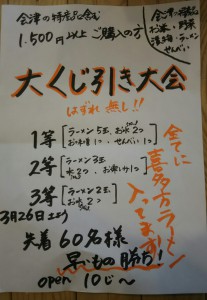 会津の特産品含む
1,500円以上ご購入の方
会津の特産
お米・野菜
漬物・ラーメン
せんべい
大くじ引き大会
はずれ無し!!
1等 ラーメン5玉、お水2コ
お味噌1コ、せんべい1コ
2等 ラーメン3玉
水2コ、お味噌1コ
3等 ラーメン2玉
お水2コ
全てに喜多方ラーメン
入ってます!
3月26日土より
先着60名様
早いもの勝ち!
open 10じ〜